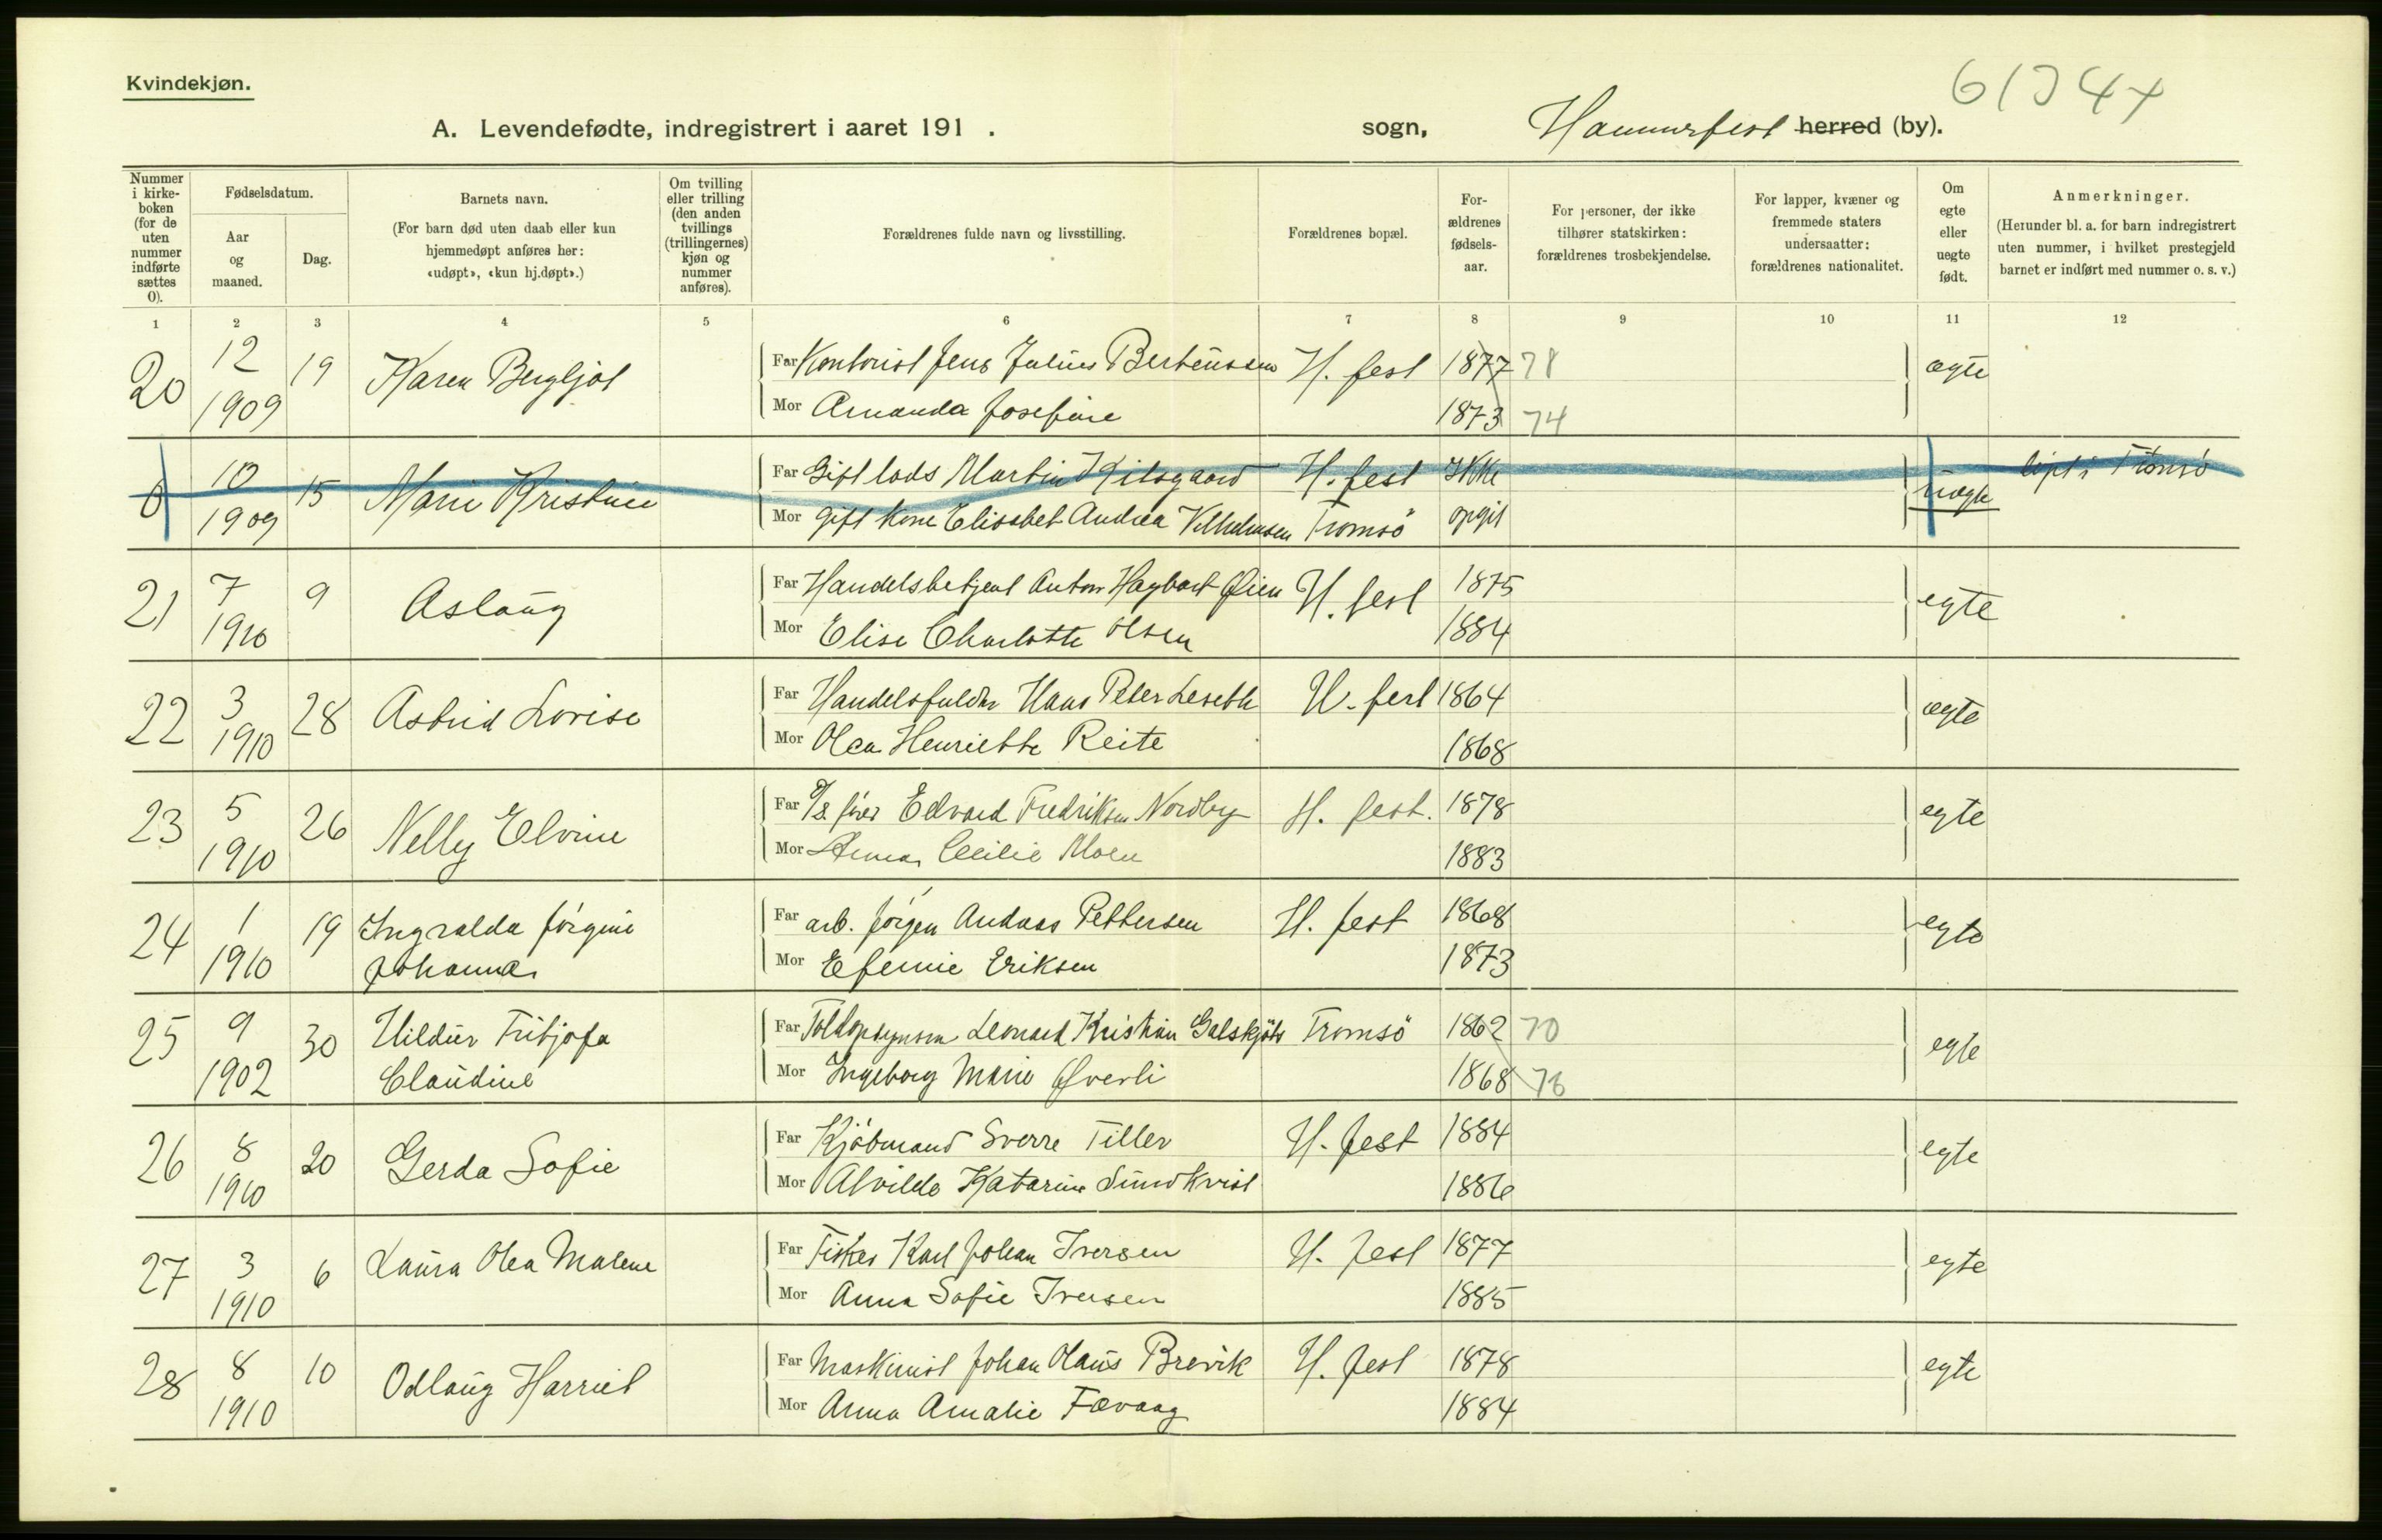 Kvindekjøn.
A. Levendefødte, indregistrert i aaret 191 . sogn, Hammerfest herred (by).
Nummer i kirkeboken (for de uten nummer indførte sættes 0).
Fødselsdatum.
Aar og maaned.
Dag.
Barnets navn.
(For barn død uten daab eller kun hjemmedøpt anføres her: «udøpt», «kun hj.døpt».)
Om tvilling eller trilling (den anden tvillings (trillingernes) kjøn og nummer anføres).
Forældrenes fulde navn og livsstilling.
Forældrenes bopæl.
Forældrenes fødselsaar.
For personer, der ikke tilhører statskirken: forældrenes trosbekjendelse.
For lapper, kvæner og fremmede staters undersaatter: forældrenes nationalitet.
Om egte eller uegte født.
Anmerkninger.
(Herunder bl. a. for barn indregistrert uten nummer, i hvilket prestegjeld barnet er indført med nummer o. s. v.)
1 2 3 4 5 6 7 8 9 10 11 12
20 12 1909 19 Karen Bergljot Far Kontorist Jens Julius Berteussen H. fest 1877 78 ægte
Mor Amanda Josefine 1873 74
0 10 1909 15 Marie Kristine Far Gift lods Martin H. fest Ikke uægte Tromsö
Mor gift kone Elisabet Andrea Vilhelmsen Tromsö opgit
21 7 1910 9 Aslaug Far Handelsbetjent Anton Hagbart Øien H. fest 1875 egte
Mor Elise Charlotte Olsen 1884
22 3 1910 28 Astrid Lovise Far Hans Peter Leseth H. fest 1864 ægte
Mor Olea Henriette Reite 1868
23 5 1910 26 Nelly Elvine Far Edvard Fredriksen Nordby H. fest. 1878 egte
Mor Anna Cecilie Moen 1883
24 1 1910 19 Ingvalda Jörgine Johanna Far arb. Jörgen Andreas Pettersen H. fest 1868 egte
Mor Efemie Eriksen 1873
25 9 1902 30 Hildur Fritjofa Claudine Far Leonard Kristian Galskjöt Tromsö 1862 70 egte
Mor Ingeborg Marie Øverli 1868 76
26 8 1910 20 Gerda Sofie Far Kjöbmand Sverre Tiller H. fest 1884 egte
Mor Alvilde Katarine Sundkvist 1886
27 3 1910 6 Laura Olea Malene Far Fisker Karl Johan Iversen H. fest 1877 egte
Mor Anna Sofie Iversen 1885
28 8 1910 10 Odlaug Harriet Far Maskinist Johan Olaus Brevik H. fest 1878 egte
Mor Anna Amalie Fævaag 1884